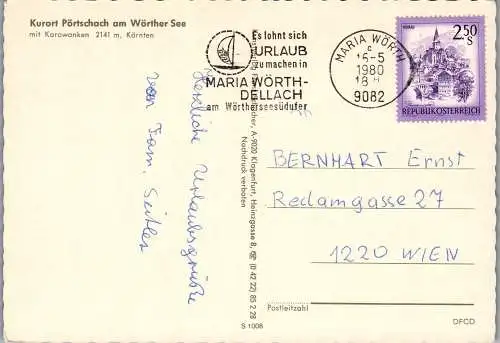 Kurort Pörtschach am Wörther See
mit Karawanken 2141 m, Kärnten
Es lohnt sich
URLAUB
zu machen in
MARIA WÖRTH-
DELLACH
am Wörtherseesüdufer
MARIA WÖRTH
c
15-5
1980
18
9082
2.50
S
REPUBLIK ÖSTERREICH
Herzliche Urlaubsgrüße
von Fam. Seitler
A-9020 Klagenfurt, Heinzgasse 8, (0 42 22) 85 2 28
Nachdruck verboten
S 1008
BERNHART Ernst
Reclamgasse 27
1220 WIEN
Postleitzahl
DFCD